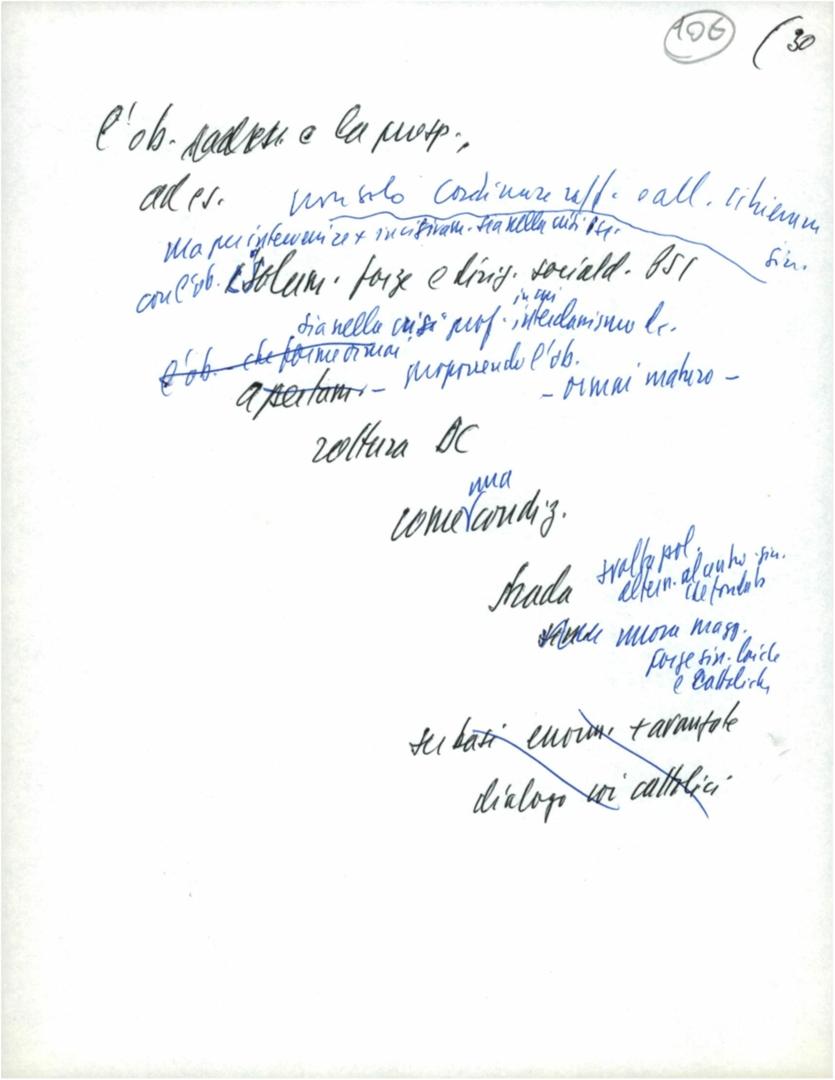 106 (30
l'ob. e la prosp.,
ad es. non solo coordinare raff. e all. schieram
sin.
ma per intervenire + incisivam. sia nella crisi PSI.
con l'ob. isolam. forze e dirig. sociald. PSI
sia nella crisi prof. interclassismo dc.
in cui
l'ob. che forme ormai
apertam. – proponendo l'ob.
– ormai maturo –
rottura DC
una
come condiz.
strada svolta pol.
altern. al centro-sin.
che fondata
nuova magg.
forze sin. laiche
e cattolich,
su basi enorm. + avanzate
dialogo coi cattolici